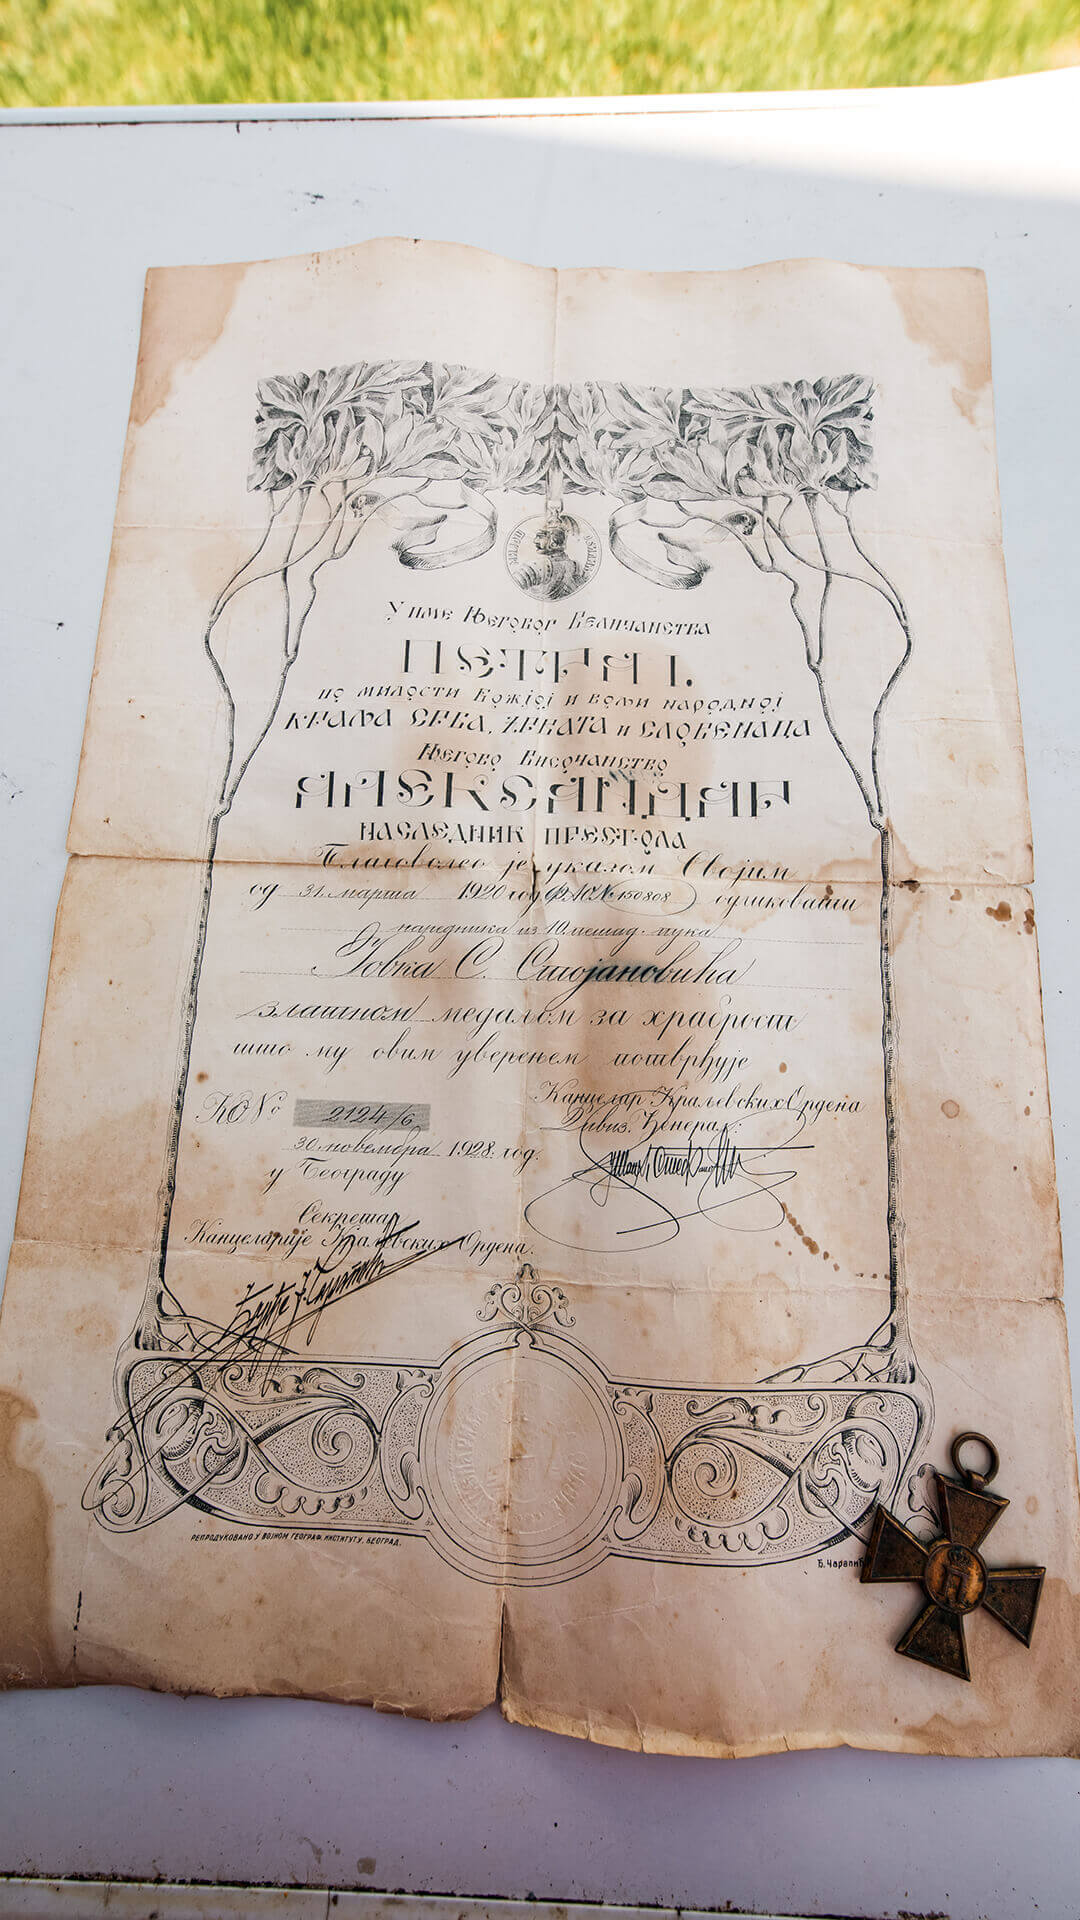 У име Његовог Величанства
ПЕТРА I.
по милости Божјој и вољи народној
Краља Срба, Хрвата и Словенаца
Његово Височанство
АЛЕКСАНДАР
НАСЛЕДНИК ПРЕСТОЛА
Благоволео је указом Својим
од 31. марта 1920 год. Ф.А.О.№ 150808 одликовати
наредника из 10. пешад. пука
Јовка С. Стојановића
златном медаљом за храброст
што му овим уверењем потврђује
КО№ 2124/6
30 новембра 1928 год.
у Београду
Канцелар Краљевских Ордена
Дивиз. Ђенерал:
Секретар
Канцеларије Краљевских Ордена.
РЕПРОДУКОВАНО У ВОЈНОМ ГЕОГРАФ. ИНСТИТУТУ, БЕОГРАД.